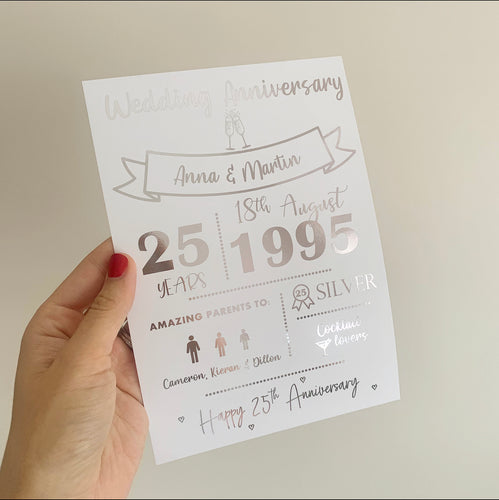 Wedding Anniversary
Anna & Martin
25
YEARS
18th August
1995
AMAZING PARENTS TO:
Cameron, Kieran & Dillon
25
SILVER
Cocktail
lovers
Happy 25th Anniversary